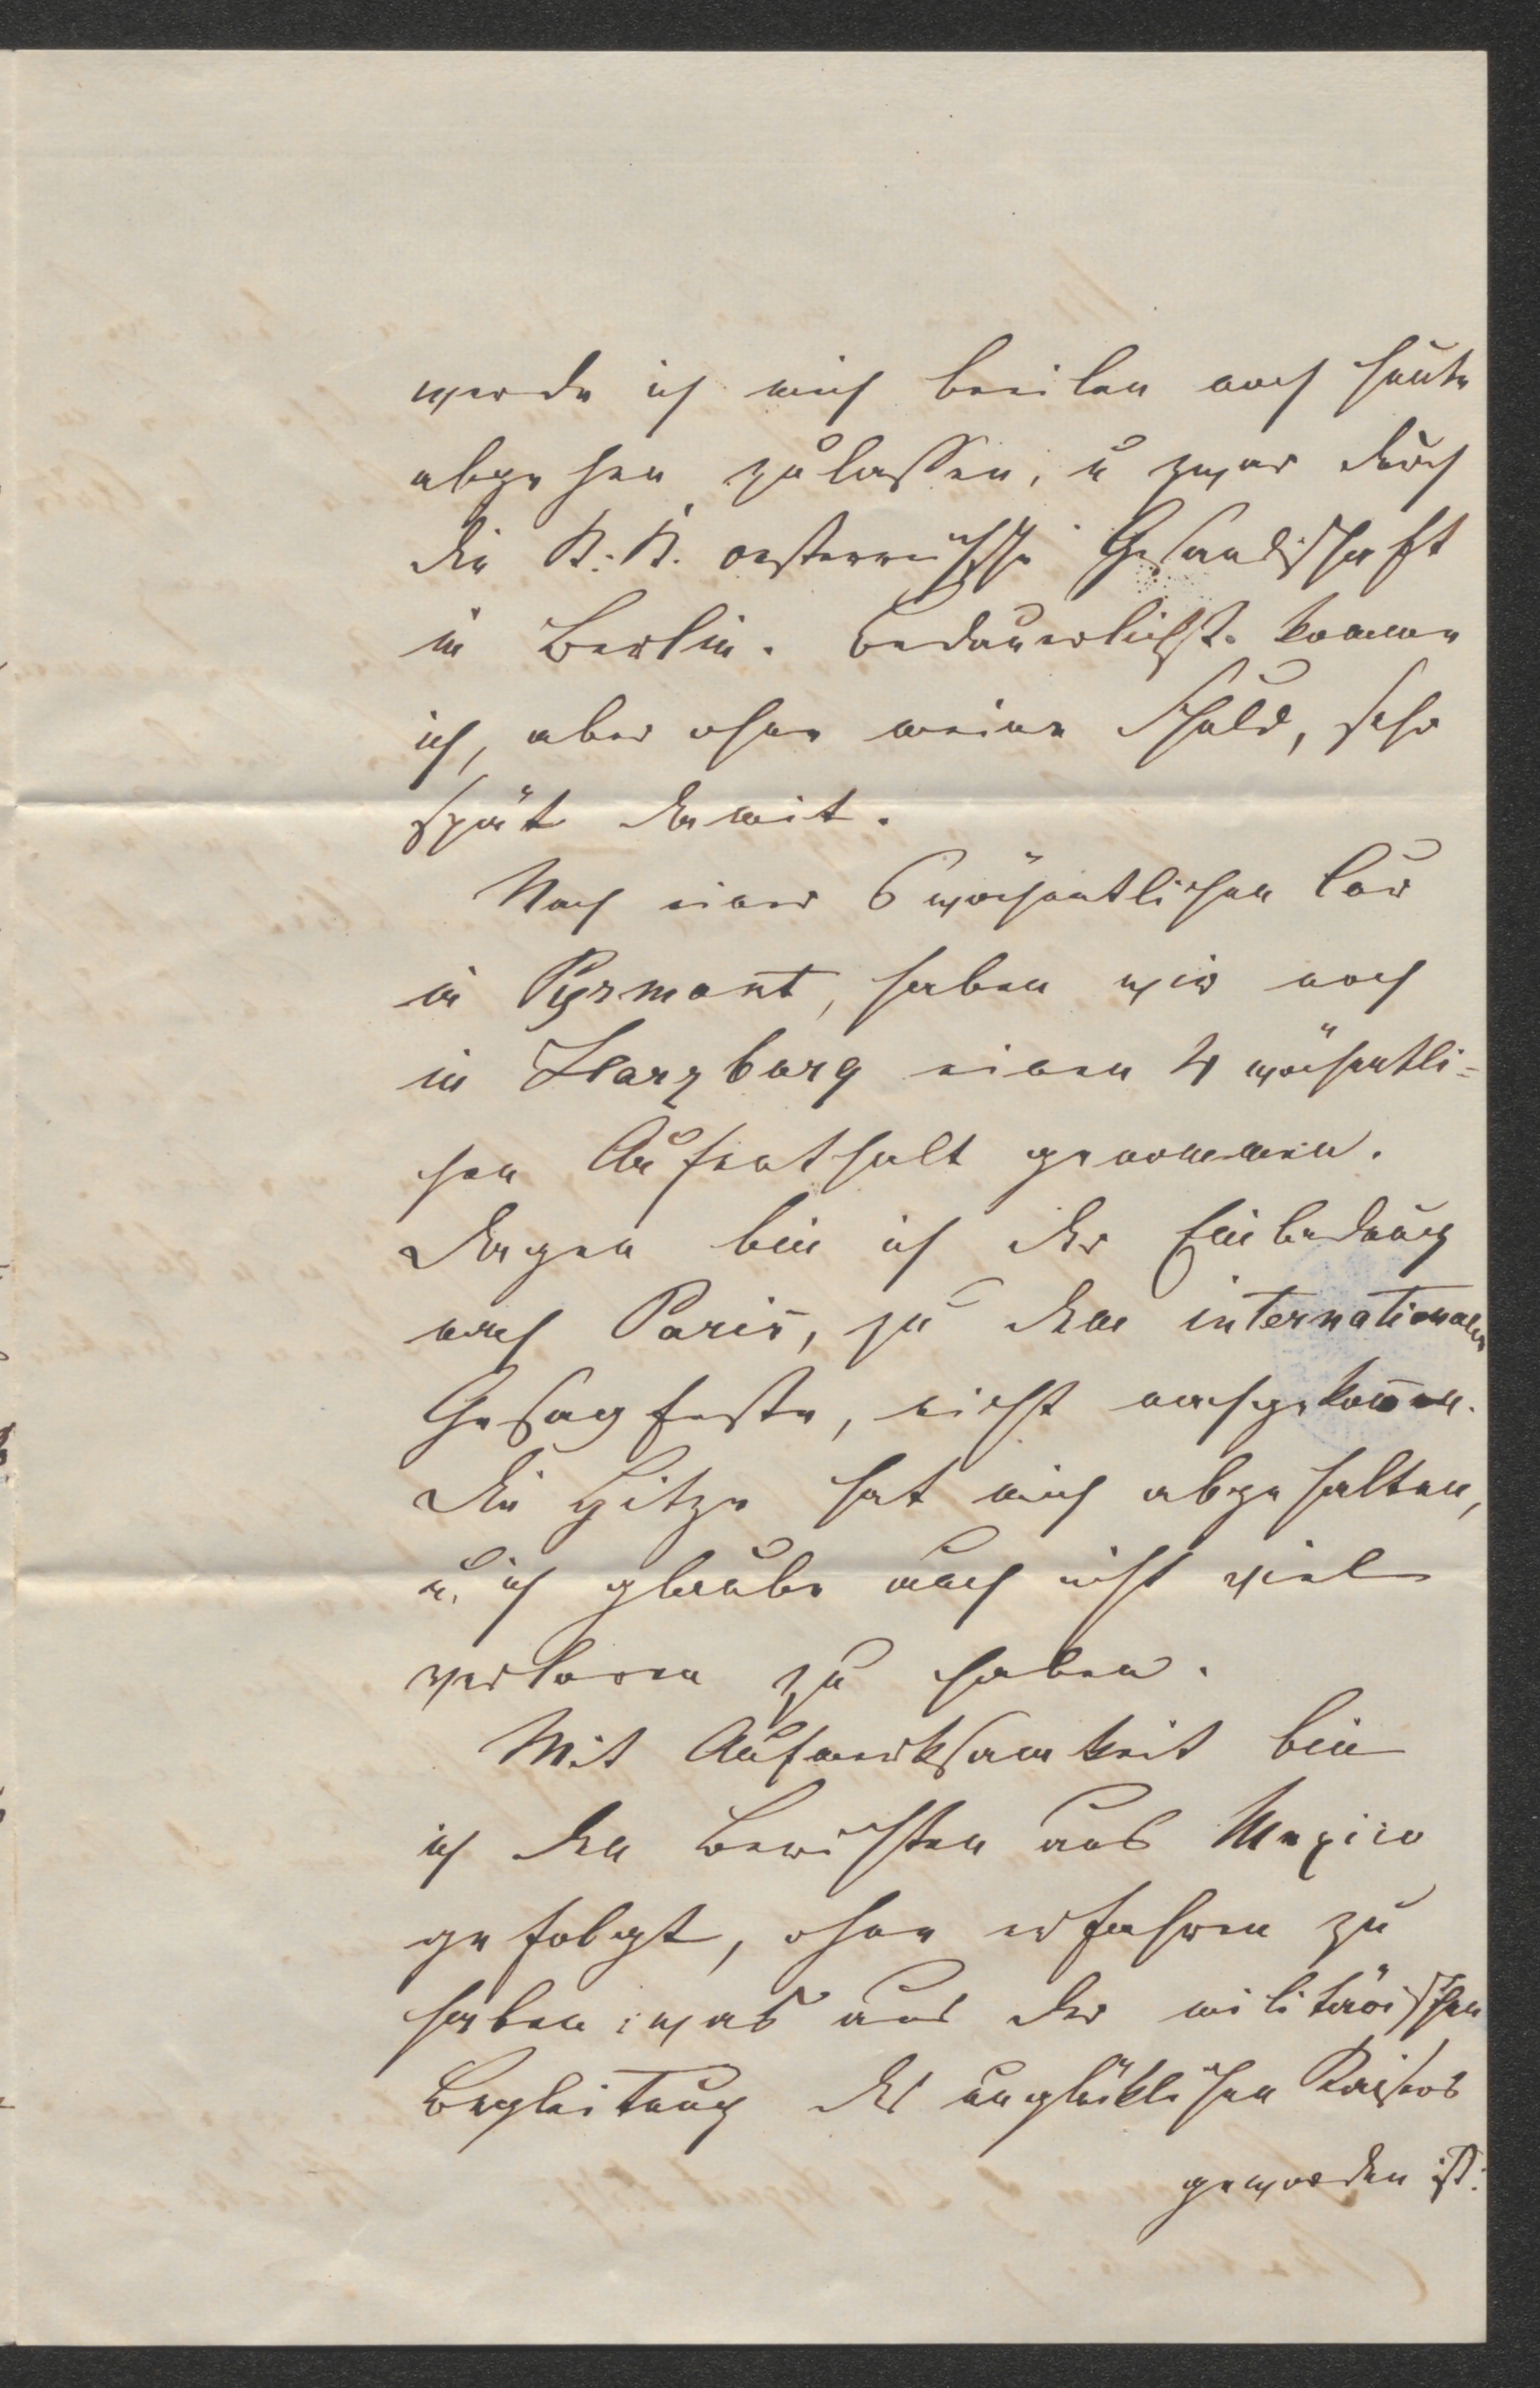 werde ich mich beeilen noch heute
abgehen zu lassen, u zwar durch
die K. K. oesterreichsche Gesandtschaft
in Berlin. Bedauerlichst komme
ich, aber ohne meine Schuld, sehr
spät damit.
Nach einer 6 wöchentlichen Cur
in Pyrmont, haben wir noch
in Harzburg einen 4 wöchentli=
chen Aufenthalt genommen.
Dagegen bin ich der Einladung
nach Paris, zu dem internationalen
Gesangfeste, nicht nachgekom̄en.
Die Hitze hat mich abgehalten,
u. ich glaube auch nicht viel
verloren zu haben.
Mit Aufmerksamkeit bin
ich den Berichten aus Mexico
gefolgt, ohne erfahren zu
haben, was aus der militärischen
Begleitung des unglücklichen Kaisers
geworden ist.